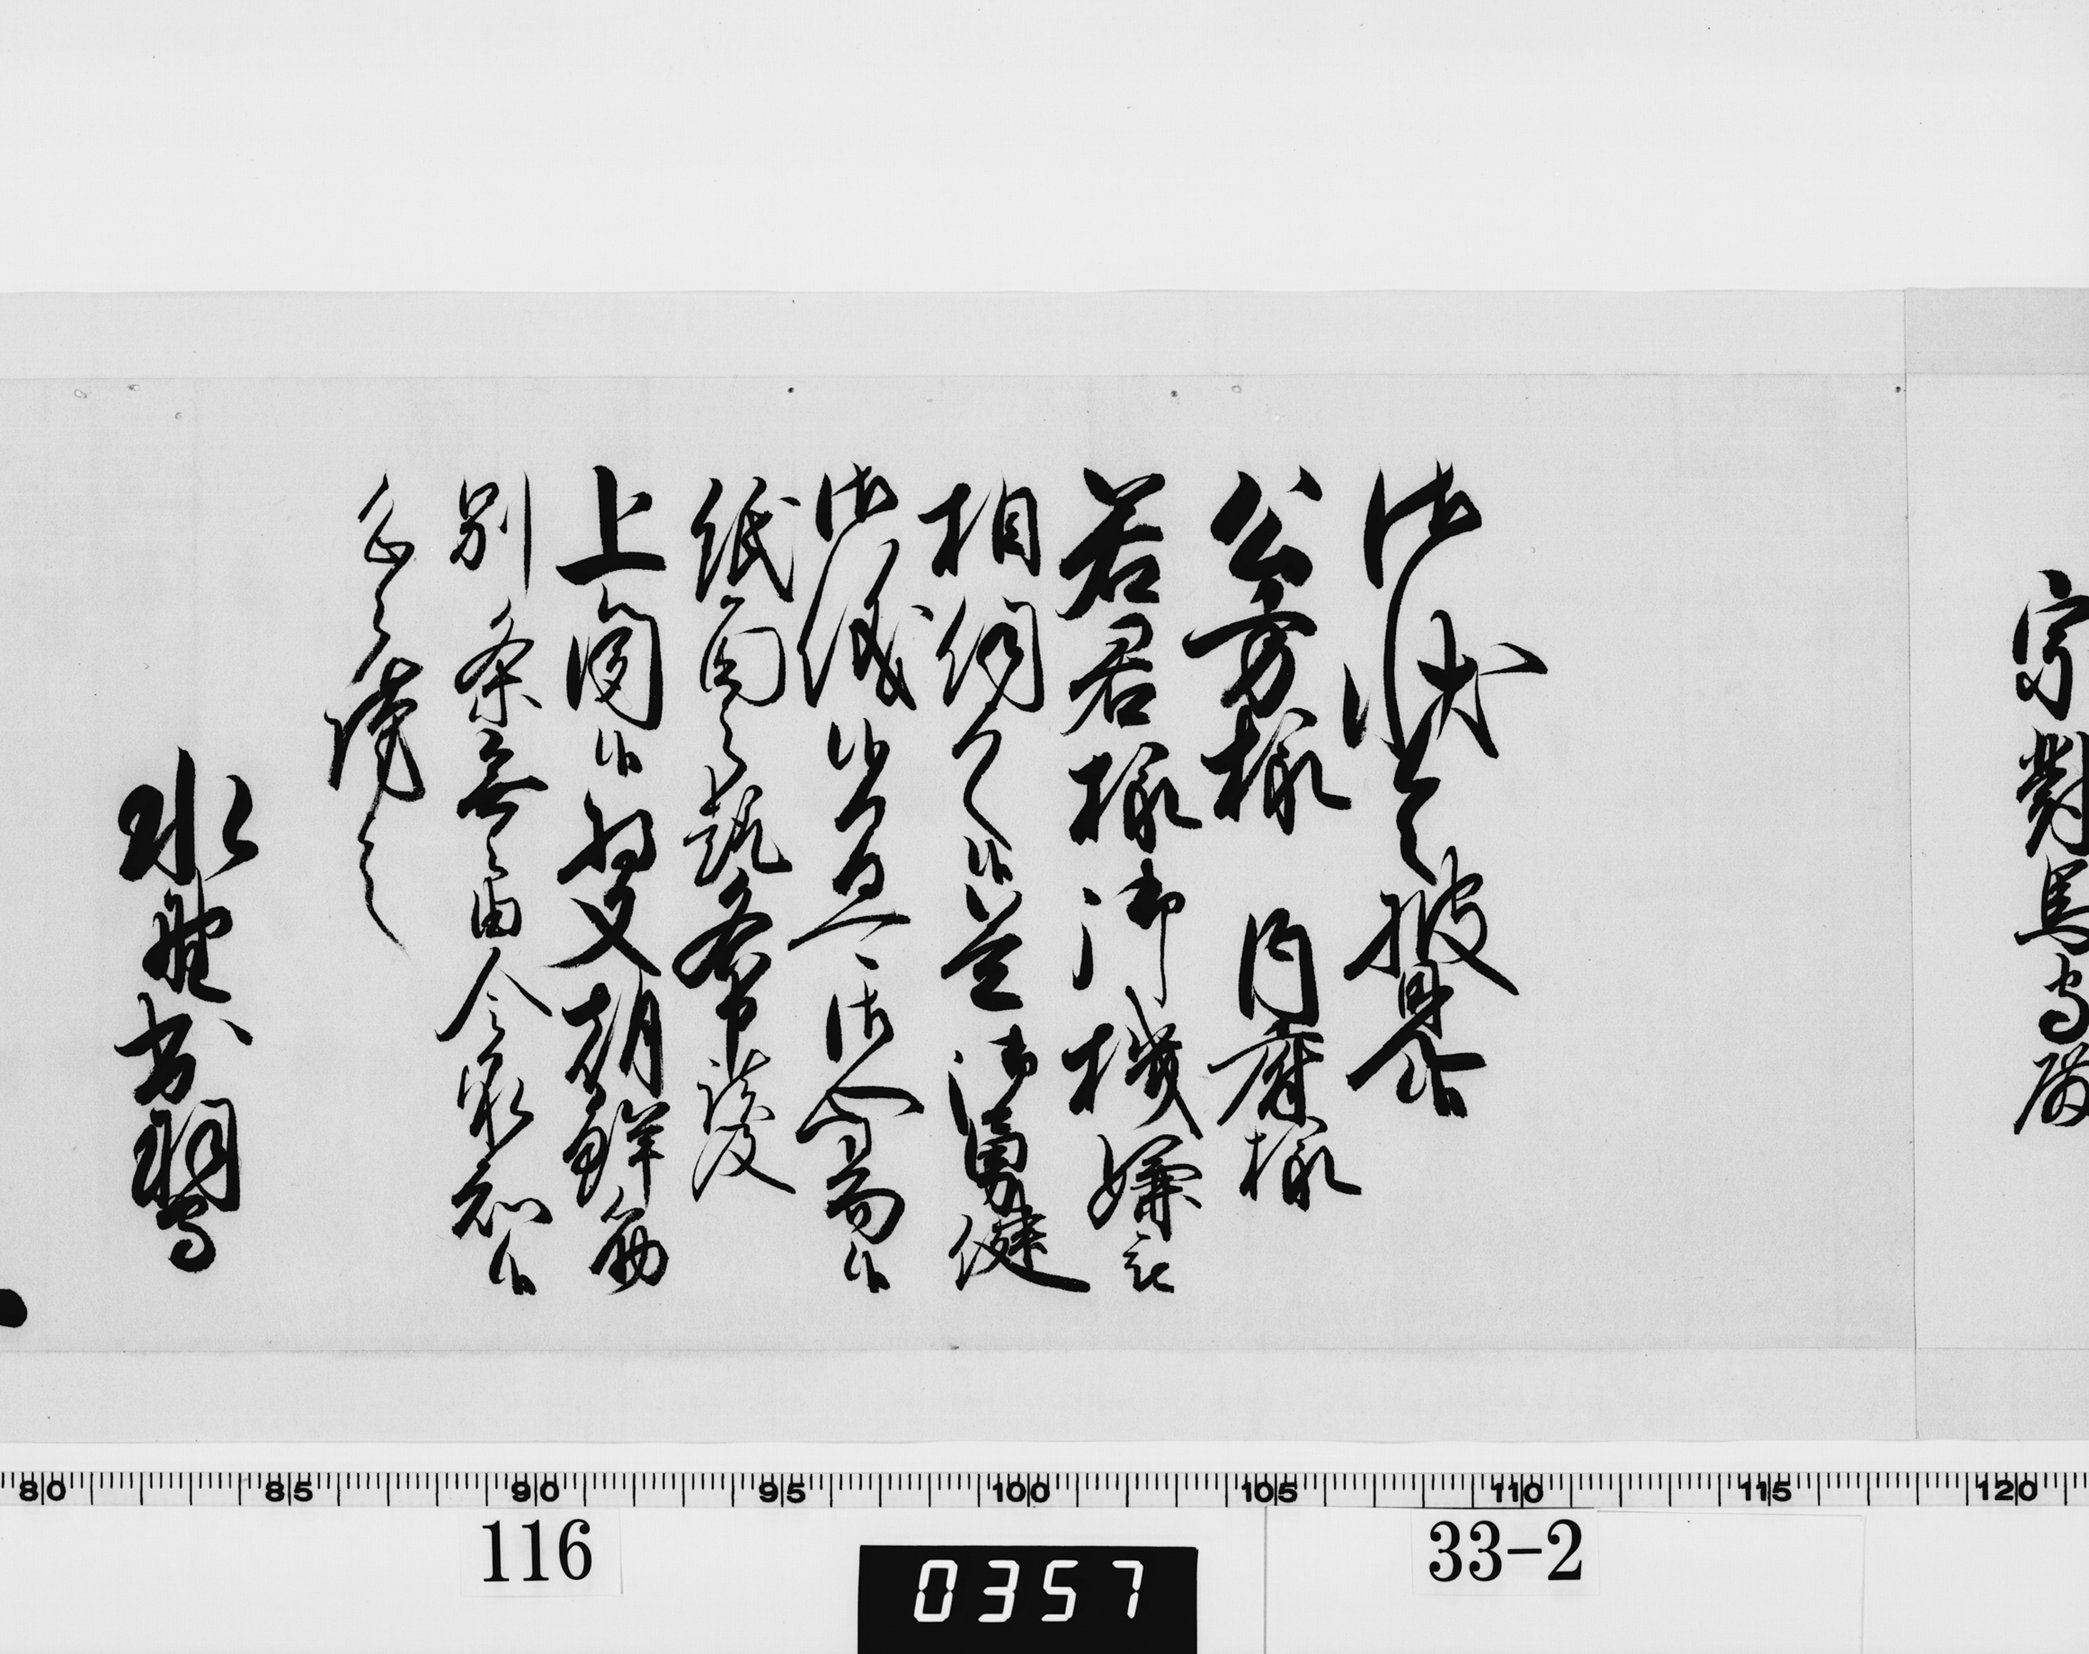 宗對馬守殿
御状令披見候
公方様 内府様
若君様御機嫌被
相伺之候益御勇健
御儀候 御心易候
紙面之趣各申談及
上聞候将又朝鮮筋
別条無之由令承知候
恐々謹言
水野出羽守
80 85 90 95 100 105 110 115 120
116
33-2
0357